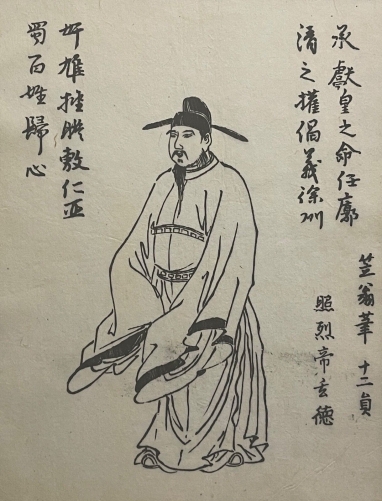 承獻皇之命任廓
清之權倡義徐州
笠翁筆 十二頁
照烈帝玄德
奸雄挫胆敷仁西
蜀百姓歸心